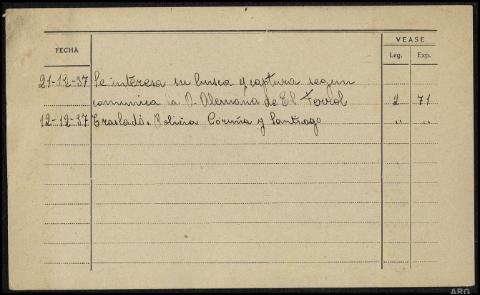 VEASE
FECHA
Leg. Exp.
21-12-37 Se interesa su busca y captura segun
comunica a D. Alemana de El Ferrol 2 71
12-12-37 Traslado. Policia Coruña y Santiago " "
ARG